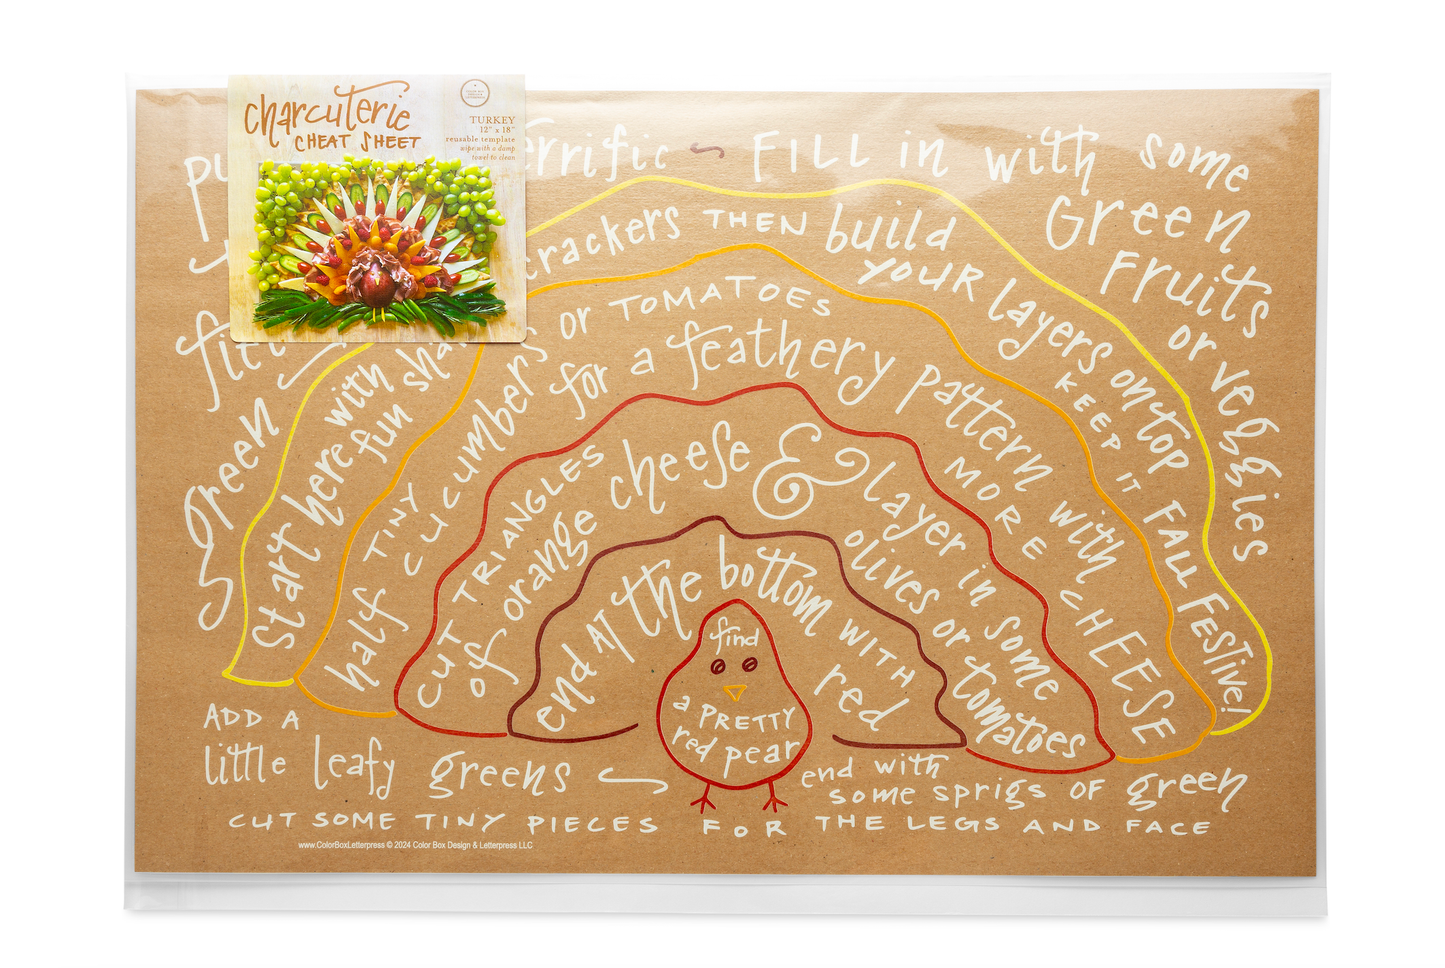 charcuterie
CHEAT SHEET
TURKEY
12" x 18"
reusable template
wipe with a damp
towel to clean
FILL in with some
Green
Fruits
or veggies
green
Start here with crackers THEN build
fun
YOUR layers on top
KEEP IT FALL FESTIVE!
half TINY CUCUMBERS or TOMATOES
for a feathery pattern with
MORE CHEESE
CUT TRIANGLES
of orange cheese & layer in some
olives or tomatoes
end AT the bottom WITH
red
find
a PRETTY
red pear
ADD A
little leafy greens
end with
some sprigs OF green
CUT SOME TINY PIECES FOR THE LEGS AND FACE
www.ColorBoxLetterpress © 2024 Color Box Design & Letterpress LLC